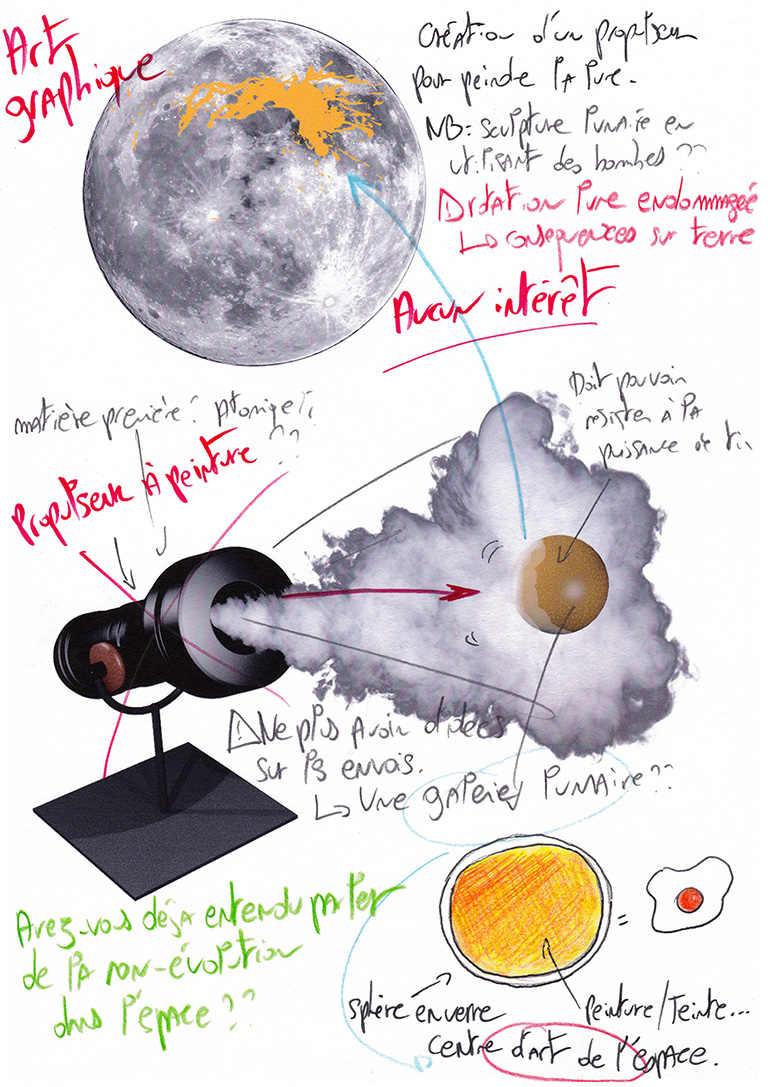 Art
graphique
création d'un propulseur
pour peindre la lune.
NB: sculpture lunaire en
utilisant des bombes ??
rotation lune endommagée
↳ conséquences sur terre
Aucun intérêt
matière première ? Atomique ??
??
Propulseur à peinture
Doit pouvoir
resister à la
puissance de tir
Ne plus avoir d'idées
sur les envois.
↳ Une galerie lunaire ??
Avez-vous déjà entendu parler
de la non-évolution
dans l'espace ??
=
sphère en verre
peinture/teinte...
centre d'art de l'espace.